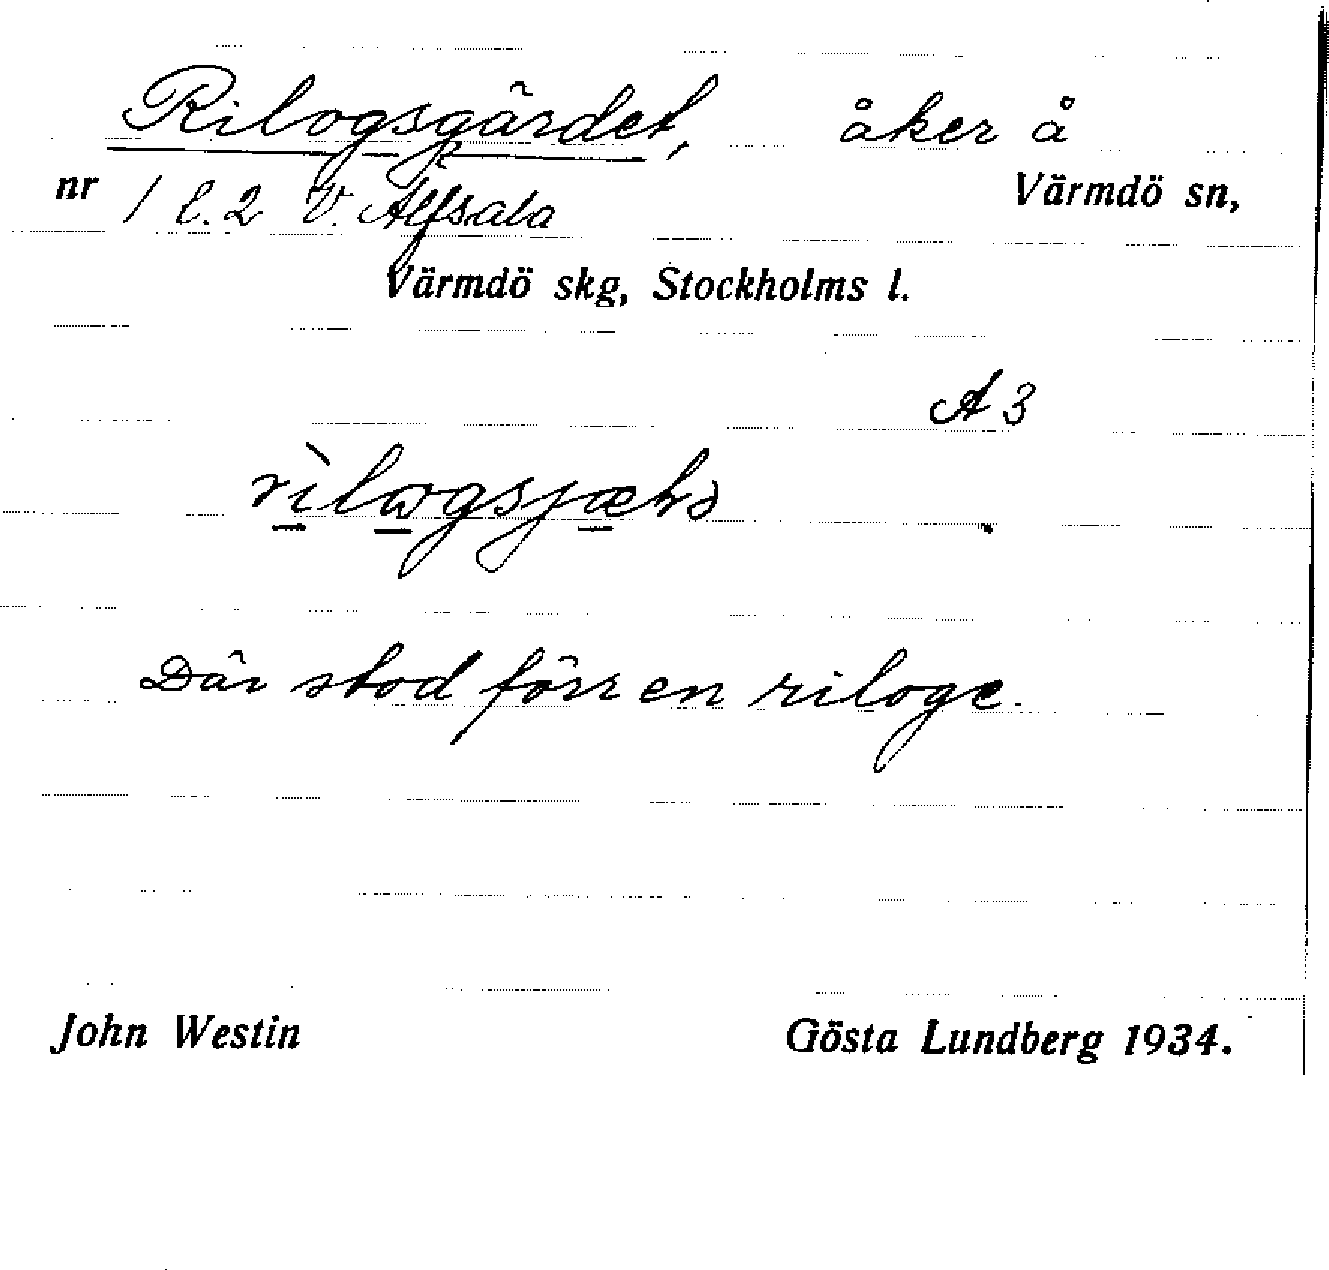 Rilogsgärdet, åker å
nr 1 l. 2 V. Alfsala Värmdö sn,
Värmdö skg, Stockholms l.
A 3
Där stod förr en riloge.
John Westin Gösta Lundberg 1934.